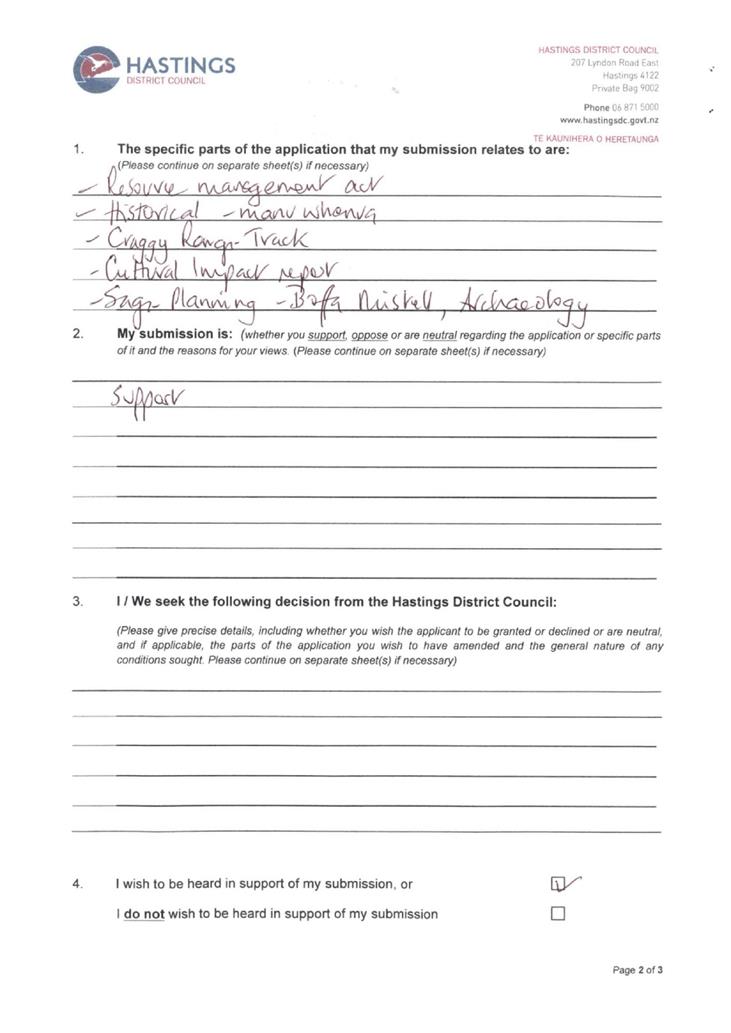 HASTINGS
DISTRICT COUNCIL
HASTINGS DISTRICT COUNCIL
207 Lyndon Road East
Hastings 4122
Private Bag 9002
Phone 06 871 5000
www.hastingsdc.govt.nz
TE KAUNIHERA O HERETAUNGA
1. The specific parts of the application that my submission relates to are:
(Please continue on separate sheet(s) if necessary)
- Resource management act
- Historical - manu whenua
- Craggy Range Track
- Cultural Impact report
- Sage Planning - Boffa Miskell, Archaeology
2. My submission is: (whether you support, oppose or are neutral regarding the application or specific parts
of it and the reasons for your views. (Please continue on separate sheet(s) if necessary)
Support
3. I / We seek the following decision from the Hastings District Council:
(Please give precise details, including whether you wish the applicant to be granted or declined or are neutral,
and if applicable, the parts of the application you wish to have amended and the general nature of any
conditions sought. Please continue on separate sheet(s) if necessary)
4. I wish to be heard in support of my submission, or
I do not wish to be heard in support of my submission
Page 2 of 3